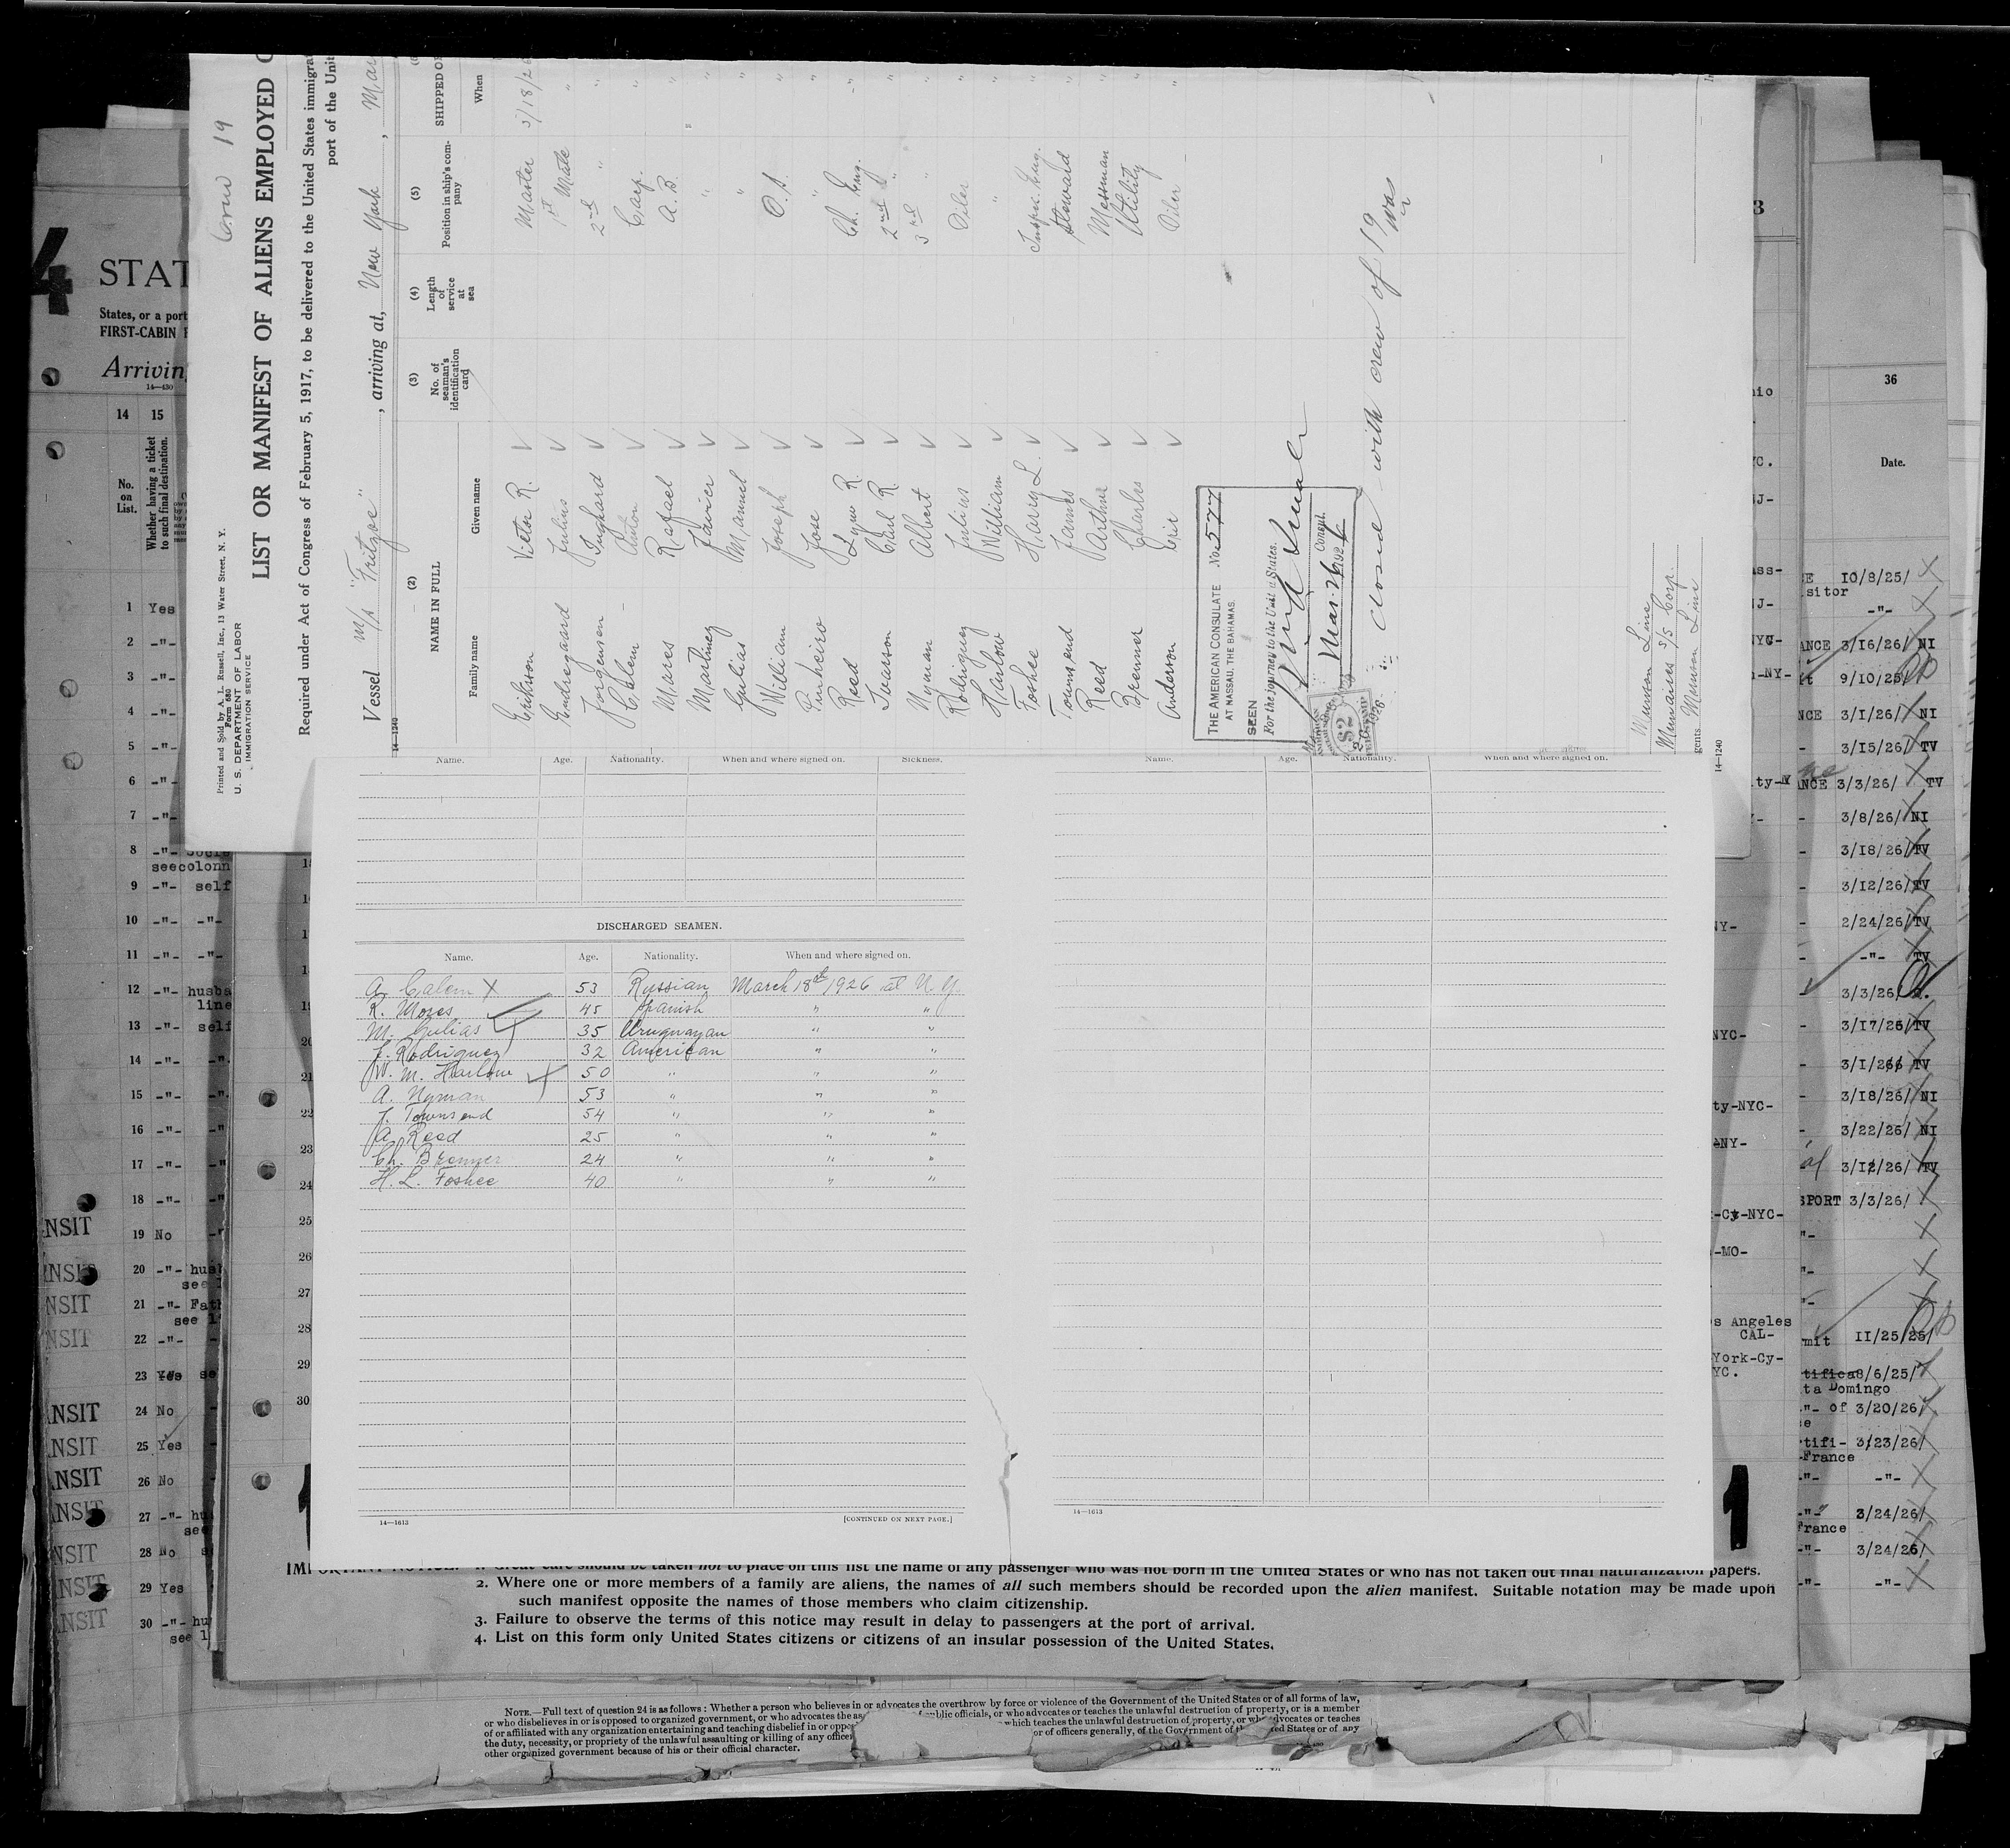 Crew 19
Printed and Sold by A. L. Russell, Inc., 13 Water Street, N. Y.
Form 680
U. S. DEPARTMENT OF LABOR
IMMIGRATION SERVICE
LIST OR MANIFEST OF ALIENS EMPLOYED
Required under Act of Congress of February 5, 1917, to be delivered to the United States immigra
port of the Unit
Vessel M/S "Fritzoe", arriving at, New York, Mar
14—1240
(2) (3) (4) (5)
NAME IN FULL No. of seaman's identification card Length of service at sea Position in ship's company SHIPPED O
Family name Given name When
Erikson Victor R. Master 3/18/26
Endregaard Julius 1st Mate "
Jorgensen Inghard 2nd " "
Calem Anton Carp. "
Mares Rafael A. B. "
Martinez Javier " "
Gulias Manuel " "
William Joseph O. S. "
Pinheiro Jose " "
Reed Lynn R. Ch. Eng. "
Ivarson Carl R. 2nd " "
Nyman Albert 3rd " "
Rodriguez Julius Oiler "
Harlow William " "
Foshee Harry L. Inspec. Eng. "
Townsend James Steward "
Reed Arthur Messman "
Brenner Charles Utility "
Anderson Eric Oiler "
THE AMERICAN CONSULATE No. 577
AT NASSAU, THE BAHAMAS.
SEEN
For the journey to the United States.
Consul.
Mar. 26 1926
closed with crew of 19
Munson Line
Munaires S/S Corp.
gents. Munson Line
14—1240
Name. Age. Nationality. When and where signed on. Sickness.
DISCHARGED SEAMEN.
Name. Age. Nationality. When and where signed on.
A. Calem X 53 Russian March 18th 1926 at N. Y.
R. Moses 45 Spanish " "
M. Gulias 35 Uruguayan " "
J. Rodriguez 32 American " "
W. M. Harlow 50 " " "
A. Nyman 53 " " "
J. Townsend 54 " " "
A. Reed 25 " " "
Ch. Brenner 24 " " "
H. L. Foshee 40 " " "
14—1613 [CONTINUED ON NEXT PAGE.]
Name. Age. Nationality. When and where signed on.
14—1613
4
STAT
States, or a port
FIRST-CABIN
Arriving
14—430
14 15
No. on List.
Whether having a ticket to such final destination.
1 Yes
2 -"-
3 -"-
4 -"-
5 -"-
6 -"-
7 -"-
8 -"-
seecolonn
9 -"- self
10 -"- -"-
11 -"- -"-
12 -"- husba
line
13 -"- self
14 -"-
15 -"-
16 -"-
17 -"-
18 -"-
NSIT 19 No
NSIT 20 -"- hus
see
NSIT 21 -"- Fath
see l
NSIT 22 -"-
23 Yes se
ANSIT 24 No
ANSIT 25 Yes
ANSIT 26 No
ANSIT 27 -"- hu
see
NSIT 28 No
ANSIT 29 Yes
ANSIT 30 -"- hu
see l
20
21
22
23
24
25
26
27
28
29
30
1
3
36
Date.
10/8/25/
sitor -"-
ANCE 3/16/26/ NI
9/10/25/
NCE 3/1/26/ NI
3/15/26/ TV
ANCE 3/3/26/ TV
3/8/26/ NI
3/18/26/ TV
3/12/26/ TV
2/24/26/ TV
-"- TV
3/3/26/
3/17/26/ TV
3/1/26/ TV
3/18/26/ NI
3/22/26/ NI
3/12/26/ TV
SPORT 3/3/26/
mit 11/25/25/
8/6/25/
ta Domingo
-"- of 3/20/26/
tifi- 3/23/26/
France
-"- -"-
-"- 3/24/26/
France
-"- 3/24/26/
-"- -"-
ty-NYC-
-NY-
-NYC-
-MO-
s Angeles
CAL-
York-Cy-
YC.
1
1. Great care should be taken not to place on this list the name of any passenger who was not born in the United States or who has not taken out final naturalization papers.
2. Where one or more members of a family are aliens, the names of all such members should be recorded upon the alien manifest. Suitable notation may be made upon
such manifest opposite the names of those members who claim citizenship.
3. Failure to observe the terms of this notice may result in delay to passengers at the port of arrival.
4. List on this form only United States citizens or citizens of an insular possession of the United States.
NOTE.—Full text of question 24 is as follows: Whether a person who believes in or advocates the overthrow by force or violence of the Government of the United States or of all forms of law,
or who disbelieves in or is opposed to organized government, or who advocates the as public officials, or who advocates or teaches the unlawful destruction of property, or is a member
of or affiliated with any organization entertaining and teaching disbelief in or oppo which teaches the unlawful destruction of property, or who advocates or teaches
the duty, necessity, or propriety of the unlawful assaulting or killing of any officer or of officers generally, of the Government of the United States or of any
other organized government because of his or their official character.